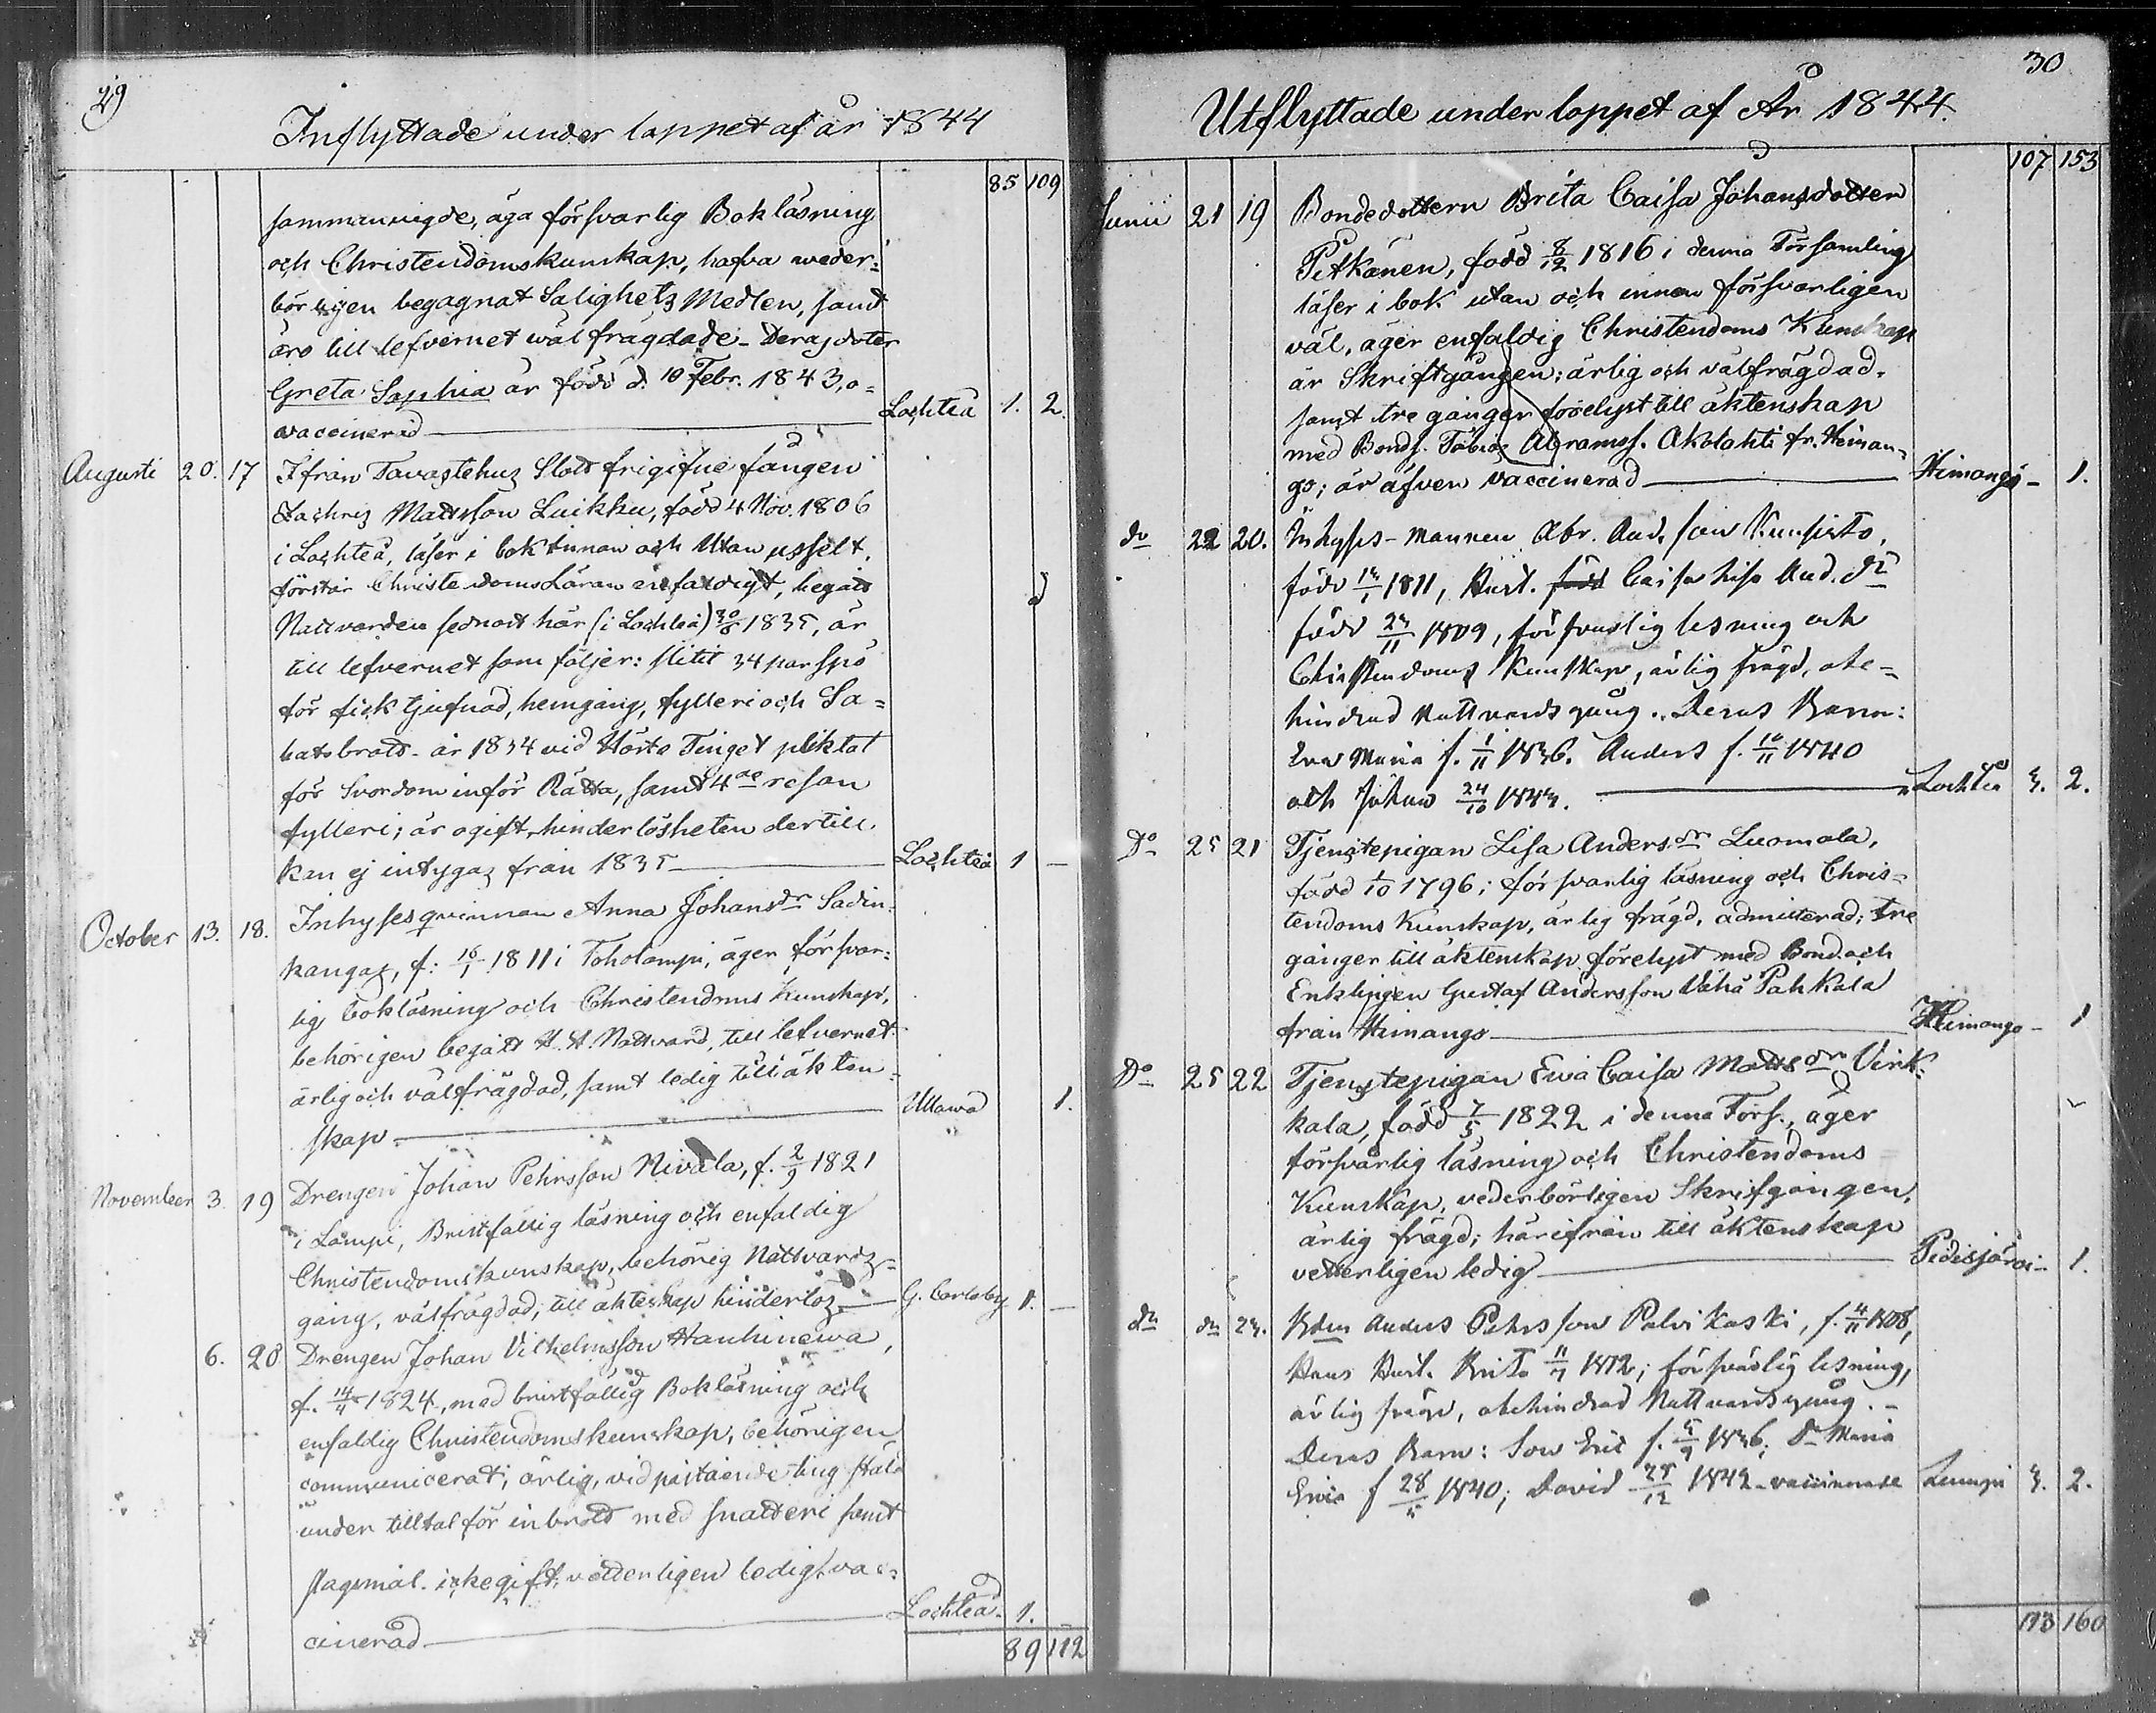 29
Inflyttade under loppet af år 1844
85 109
sammanvigde, äga försvarlig Bokläsning
och Christendomskunskap, hafva weder-
börligen begagnat Salighets Medlen, samt
äro till lefvernet wäl frägdade - Deras doter
Greta Sophia är född d. 10 Febr. 1843, o-
vaccinerad Lochteå 1. 2.
Augusti 20. 17 Ifrån Tavastehus Slott frigifne fången
Zachris Mattsson Luikku, född 4 Nov. 1806
i Lochteå, läser i bok innan och Utan usselt,
förstår Christendoms Läran enfaldigt, begått
Nattvarden sednast här (i Lochteå) 1835, är
till lefvernet som följer: slitit 34 par spö
för fick tjufnad, hemgång, fylleri och Sa-
batsbrott - år 1834 vid Hösto Tinget pliktat
för Svordom inför Rätta, samt 4de resan
fylleri; är ogift, hinderlösheten dertill
kan ej intygas från 1835 Lochteå 1 -
October 13. 18. Inhyses qvinnan Anna Johansdr Sadin-
kangas, f. 16/1 1811 i Toholampi, äger försvar-
lig bokläsning och Christendoms kunskap,
behörigen begått H. H. Nattvard, till lefvernet
ärlig och välfrägdad, samt ledig till äkten-
skap Ullawa 1.
November 3. 19 Drengen Johan Pehrsson Nivala, f. 2/9 1821
i Lampi, Bristfällig läsning och enfaldig
Christendomskunskap, behörig Nattvards-
gång, välfrägdad; till äktenskap hinderlös G. Carleby 1. -
6. 20 Drengen Johan Vilhelmsson Hanhinewa,
f. 14/4 1824, med bristfällig Bokläsning och
enfaldig Christendomskunskap, behörigen
communicerat; ärlig, vid påstående ting stäld
under tilltal för inbrott med snatteri samt
slagsmål. icke gift, vetterligen ledig, vac-
cinerad Lochteå 1. -
89 112
30
Utflyttade under loppet af År 1844.
107 153
Junii 21 19 Bondedottern Brita Caisa Johansdotter
Pitkänen, född 8/12 1816 i denna Församling
läser i bok utan och innan försvarligen
väl, äger enfaldig Christendoms Kunskap
är Skriftgången; ärlig och välfrägdad,
samt tre gånger förelyst till äktenskap
med Bonds. Tobias Abramss. Akolahti fr. Himan-
go; är äfven vaccinerad Himango - 1.
do 22 20. Inhyses-mannen Abr. And. son Kunsisto,
född 1811, Hust. Caisa Lisa And. dr
född 1809, försvarlig läsning och
Christendoms Kunskap, ärlig frägd, obe-
hindrad Nattvards gång. Deras Barn:
Eva Maria f. 1/11 1836. Anders f. 10/11 1840
och Johan 24/10 1843. Lochteå 3. 2.
Do 25 21 Tjenstepigan Lisa Andersdr Luomala,
född 1/10 1796; försvarlig läsning och Chris-
tendoms Kunskap, ärlig frägd, admitterad; tre
gånger till äktenskap förelyst med Bond. och
Enklingen Gustaf Andersson Vähä Pahkala
från Himango Himango - 1
Do 25 22 Tjenstepigan Eva Caisa Mattsdr Virk-
kala, född 7/5 1822 i denna Förs., äger
försvarlig läsning och Christendoms
Kunskap, vederbörligen Skriftgången,
ärlig frägd; härifrån till äktenskap
vetterligen ledig Pidisjärvi - 1.
do do 23. Bden Anders Pehrsson Palvikoski, f. 4/11 1808,
Hans Hust. Brita 11/7 1812; försvarlig läsning,
ärlig frägd, obehindrad Nattvardsgång. -
Deras Barn: Son Eric f. 5/9 1836; Dr Maria
Eva f 28/5 1840; David 25/12 1842 - vaccinerade Lampi 3. 2.
113 160